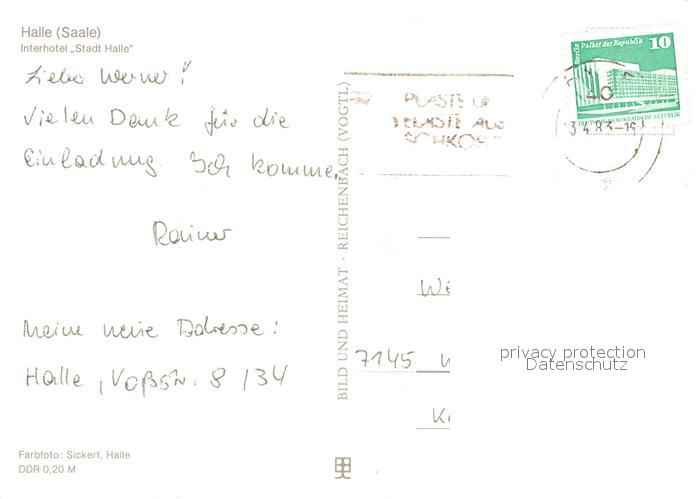 Halle (Saale)
Interhotel „Stadt Halle"
Lieber Werner!
Vielen Dank für die
Einladung. Ich komme.
Rainer
Meine neue Adresse:
Halle, Voßstr. 8 / 34
Farbfoto: Sickert, Halle
DDR 0,20 M
BILD UND HEIMAT · REICHENBACH (VOGTL)
PLASTE U
ELASTE AUS
SCHKOP
Berlin Palast der Republik 10
DEUTSCHE DEMOKRATISCHE REPUBLIK
40
3.4.83-15
We
7145 W
privacy protection
Datenschutz